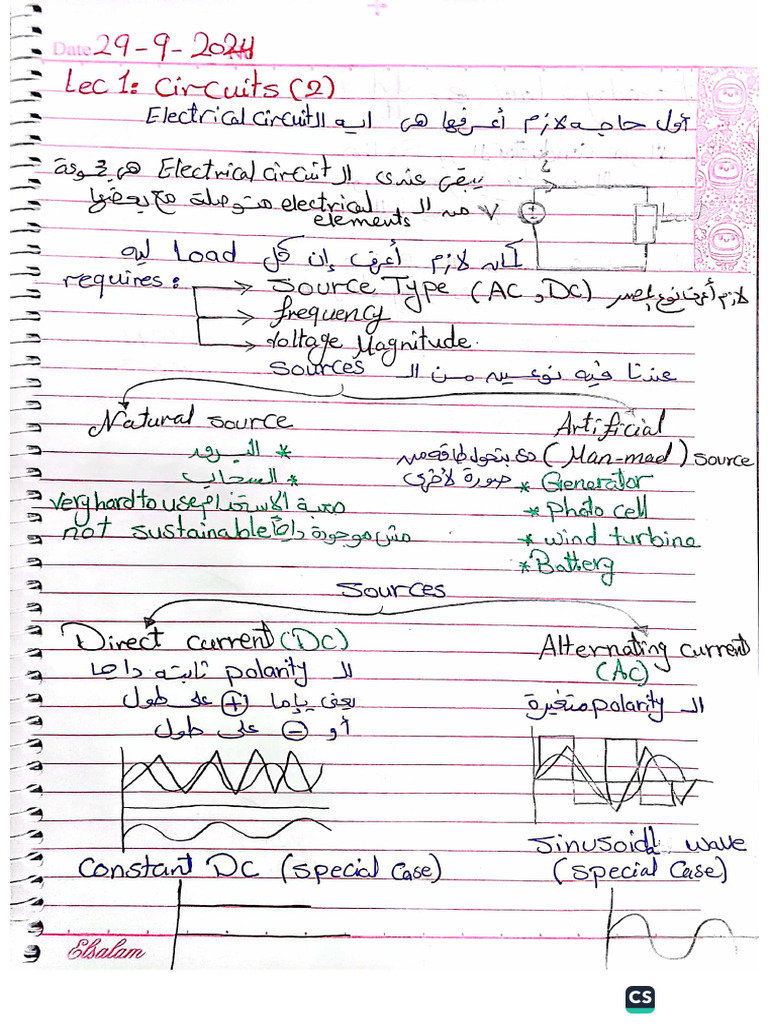 Date 29-9-2024
Lec 1: Circuits (2)
أول حاجه لازم أعرفها هي ايه الـ Electrical circuit
يبقى عندى الـ Electrical circuit هى مجموعة
من الـ electrical elements متوصلة مع بعضها
i
V
كمان لازم أعرف إن كل Load ليه
requires:
Source Type (AC, DC) لازم أعرف نوع المصدر
frequency
Voltage Magnitude.
عندنا فيه نوعين من الـ Sources
Natural source
* البرق
* السحاب
very hard to use صعبة الاستخدام
not sustainable مش موجودة دايماً
Artificial
(Man-mad) source دى بتحول طاقه من
صورة لأخرى
* Generator
* photo cell
* wind turbine
* Battery
Sources
Direct current (DC)
الـ polarity ثابته دايما
يعنى يا إما + على طول
أو - على طول
Alternating current
(AC)
الـ polarity متغيرة
Constant DC (special Case)
Sinusoidal wave
(special Case)
Elsalam
CS